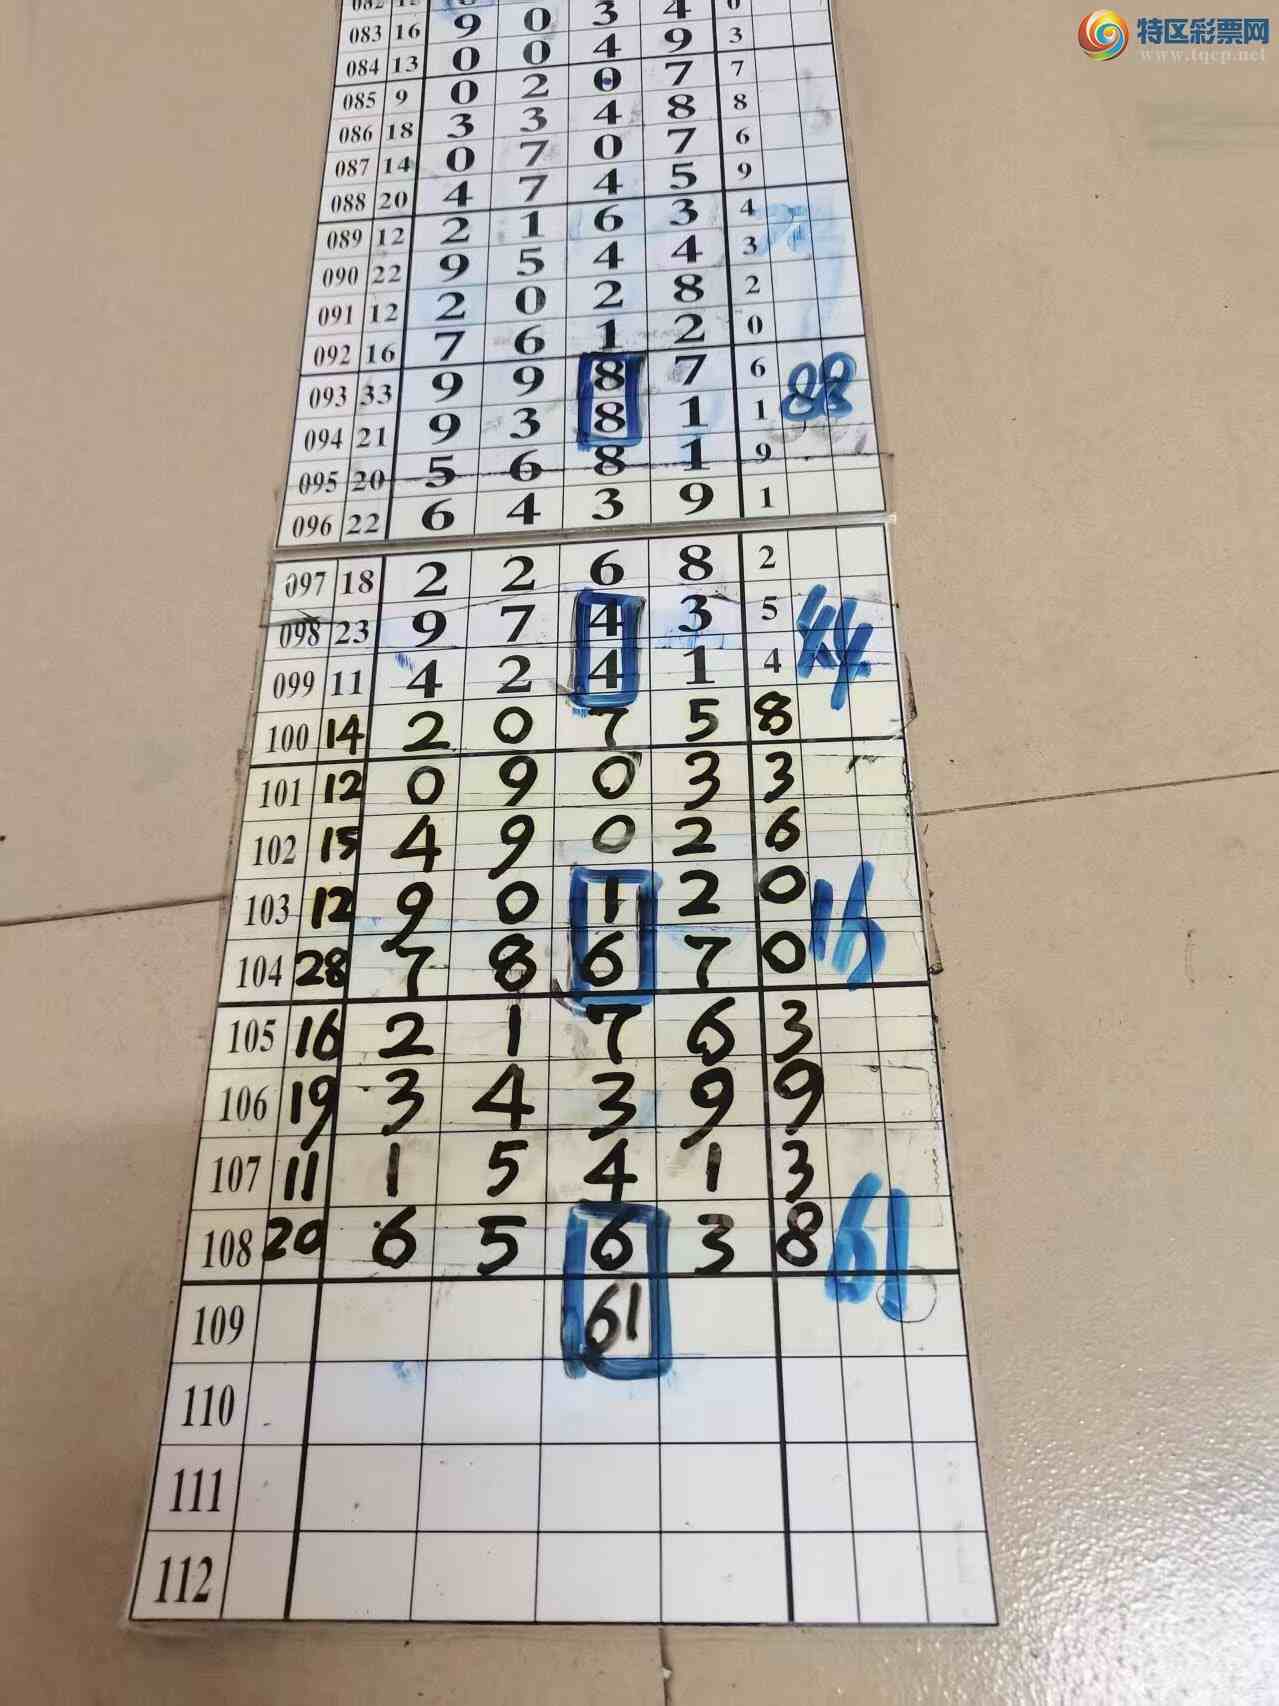 特区彩票网
www.tqcp.net
083 16 9 0 3 4 0
084 13 0 0 4 9 3
085 9 0 2 0 7 7
086 18 3 3 4 8 8
087 14 0 7 0 7 6
088 20 4 7 4 5 9
089 12 2 1 6 3 4
090 22 9 5 4 4 3
091 12 2 0 2 8 2
092 16 7 6 1 2 0
093 33 9 9 8 7 6
094 21 9 3 8 1 1 88
095 20 5 6 8 1 9
096 22 6 4 3 9 1
097 18 2 2 6 8 2
098 23 9 7 4 3 5
099 11 4 2 4 1 4 44
100 14 2 0 7 5 8
101 12 0 9 0 3 3
102 15 4 9 0 2 6
103 12 9 0 1 2 0
104 28 7 8 6 7 0 16
105 16 2 1 7 6 3
106 19 3 4 3 9 9
107 11 1 5 4 1 3
108 20 6 5 6 3 8 61
109 61
110
111
112